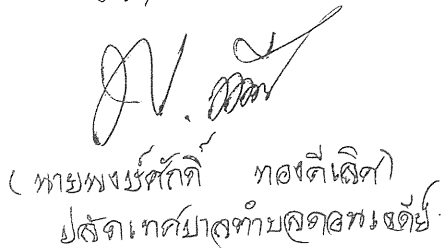 (นายพงษ์ศักดิ์ ทองดีเลิศ)
ปลัดเทศบาลตำบลดอนเจดีย์